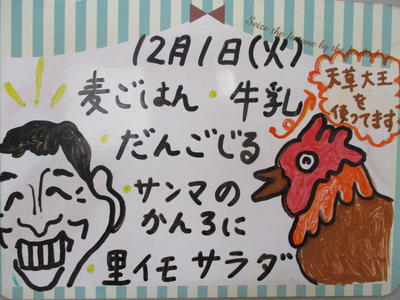 Seize the fortune by the
12月1日(火)
麦ごはん・牛乳
・だんごじる
・サンマの
かんろに
・里イモサラダ
天草大王
を
使ってます